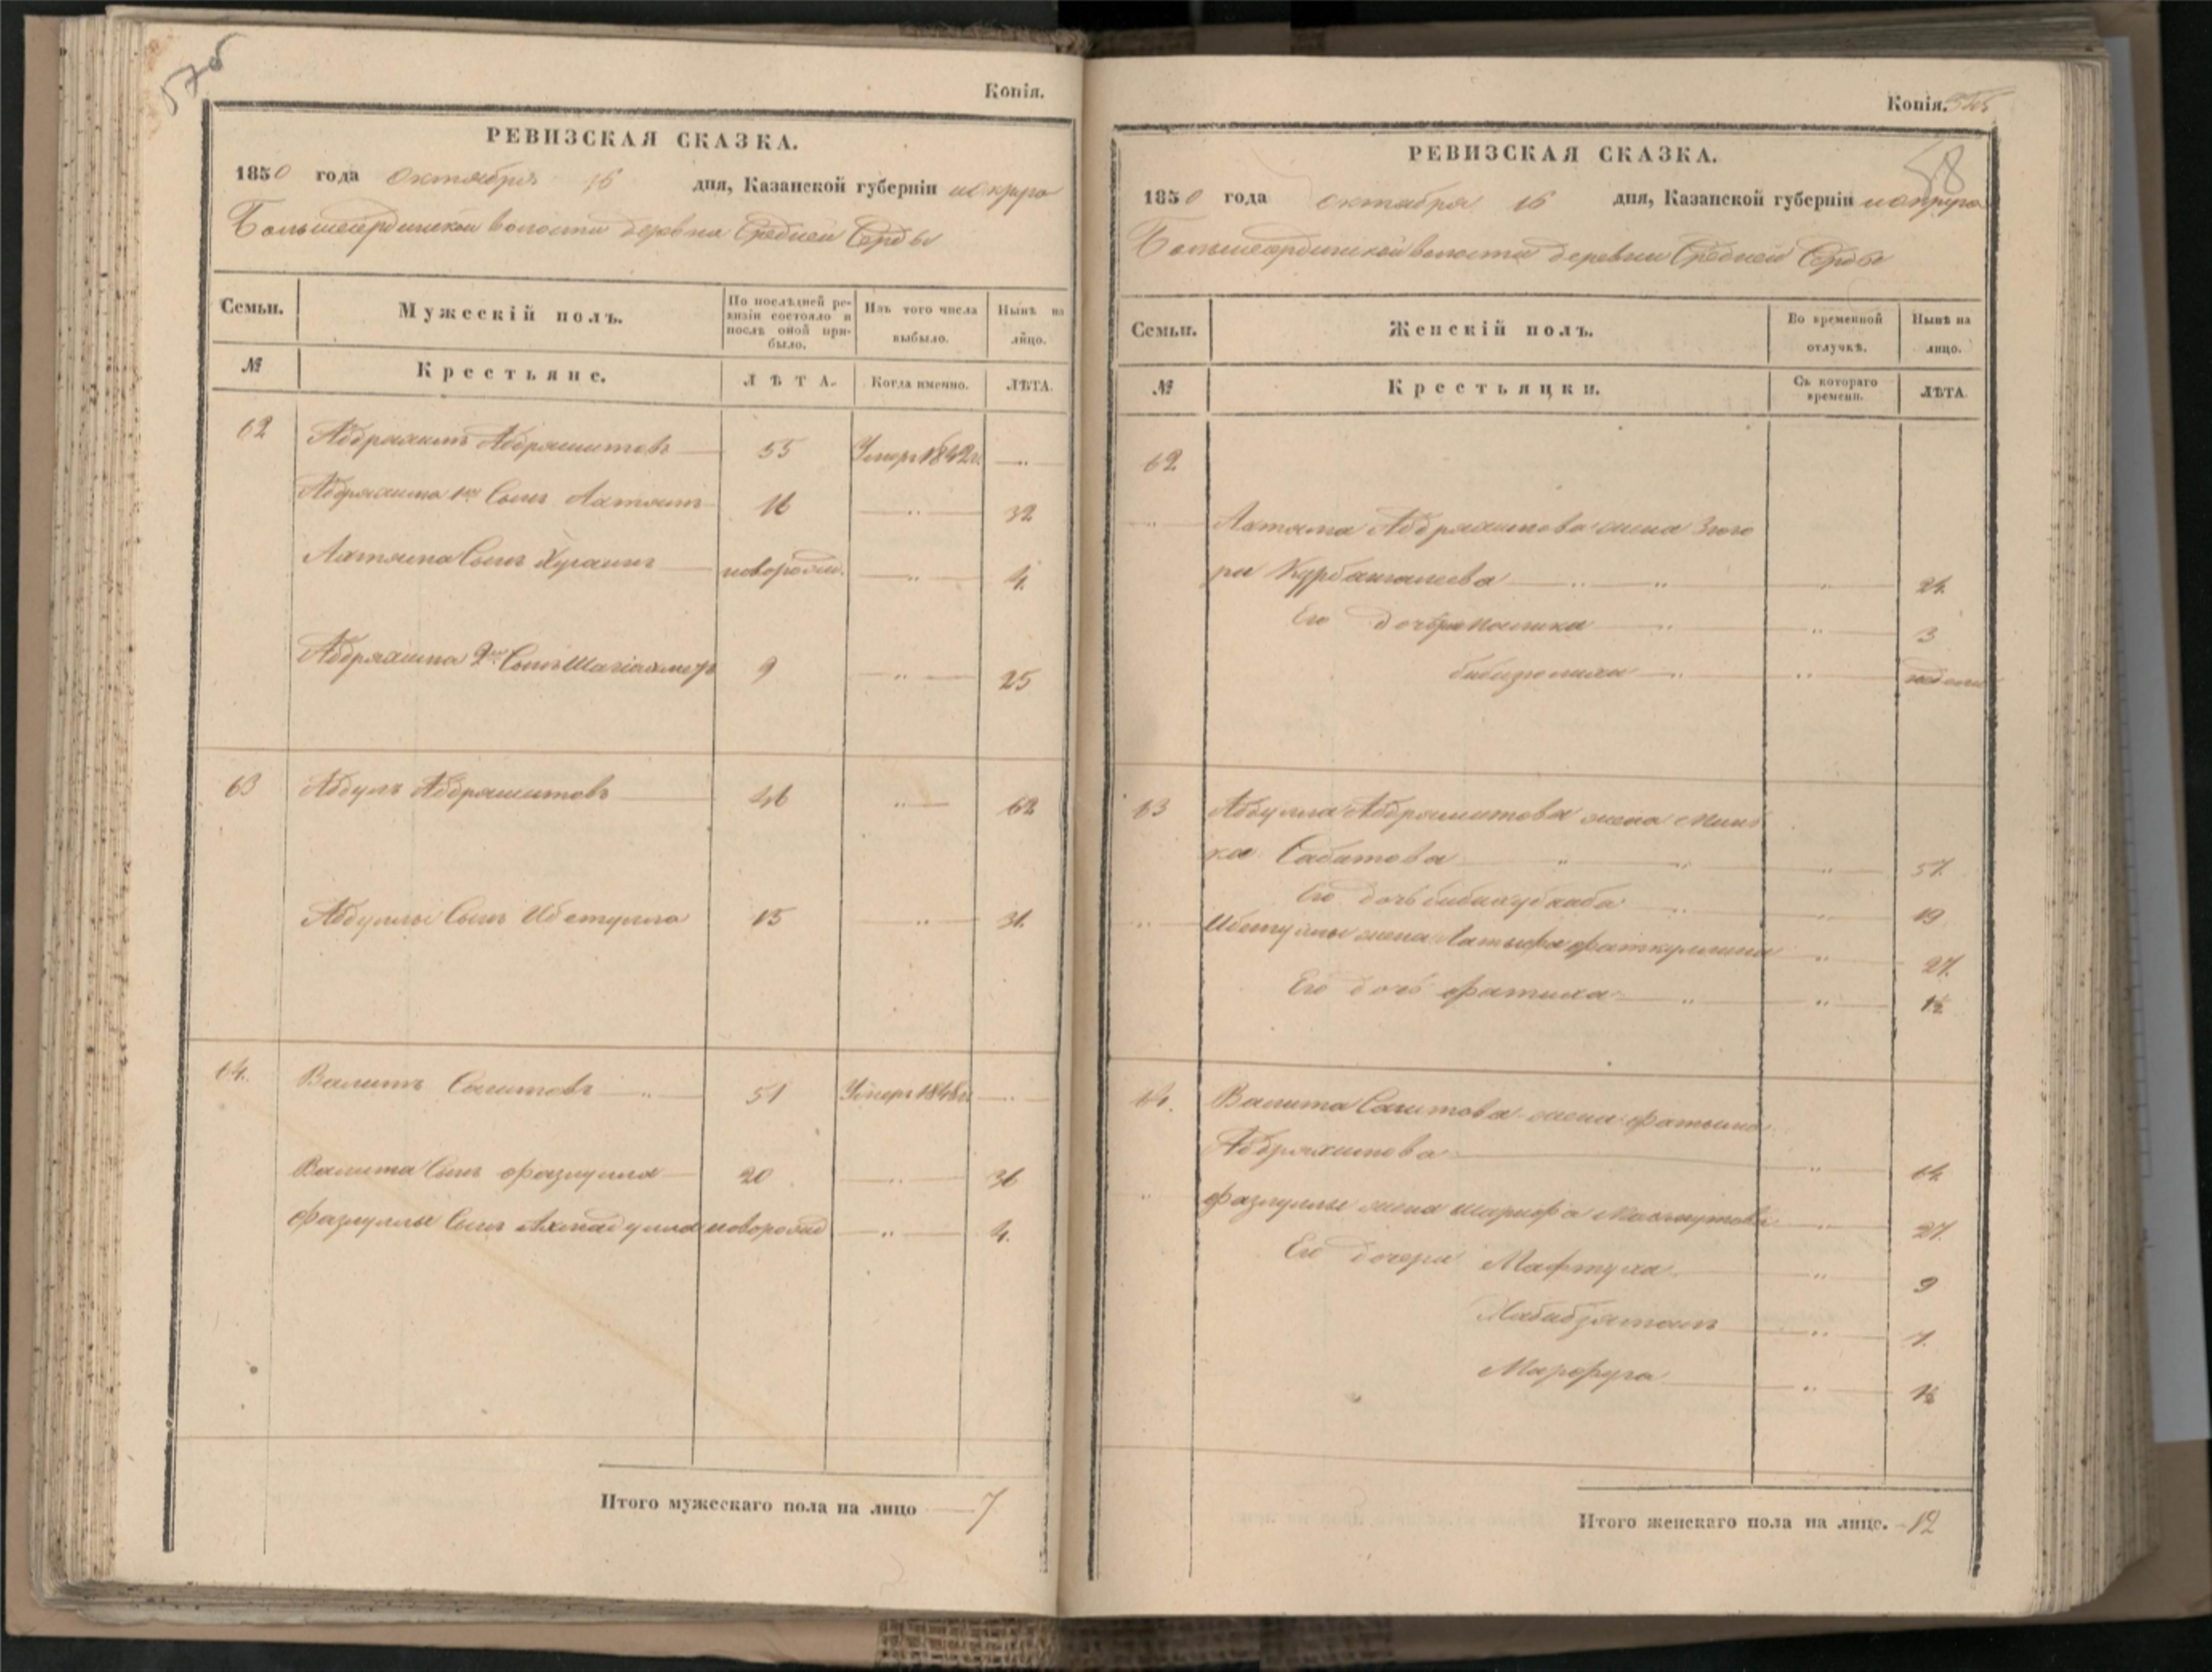 Копія.
РЕВИЗСКАЯ СКАЗКА.
1850 года октября 16 дня, Казанской губерніи и округа
Большесердинской волости деревни Средней Серды
Семьи. Мужескій полъ. По послѣдней ревизіи состояло и послѣ оной прибыло. Изъ того числа выбыло. Нынѣ на лицо.
№ Крестьяне. ЛѢТА. Когда именно. ЛѢТА.
62 Абдрахимъ Абдрашитовъ 55 Умеръ 1842 г.
Абдрахима 1й Сынъ Ахтямъ 16 " 32
Ахтяма Сынъ Хусаинъ новорожд. " 4.
Абдрахима 2й Сынъ Шагіахметъ 9 " 25
63 Абдулъ Абдрашитовъ 46 " 62
Абдуллы Сынъ Ибетулла 15 " 31.
64. Валитъ Сагитовъ " 51 Умеръ 1848 г.
Валита Сынъ Фазлулла 20 " 36
Фазлуллы Сынъ Ахмадулла новорожд " 4.
Итого мужескаго пола на лицо 7
Копія.
58
РЕВИЗСКАЯ СКАЗКА.
1850 года октября 16 дня, Казанской губерніи и округа
Большесердинской волости деревни Средней Серды
Семьи. Женскій полъ. Во временной отлучкѣ. Нынѣ на лицо.
№ Крестьянки. Съ котораго времени. ЛѢТА.
62.
" Ахтяма Абдрахимова жена Зюго
ра Курбангалеева " " " 24.
Его дочери " " 3
" " недели
63 Абдулла Абдрашитова жена
ка Сабитова " " " 57.
Его дочь " " 19
" Ибетуллы жена Латыфа Фаткуллина " 27.
Его дочь Фатиха " " 1½
64. Валита Сагитова жена Фатыма
Абдрахимова " 64
" Фазлуллы жена Шарифа Махмутова " 27.
Его дочери Мафтуха " 9
Хабибзямалъ " 7.
Марфуга " 1½
Итого женскаго пола на лице. 12